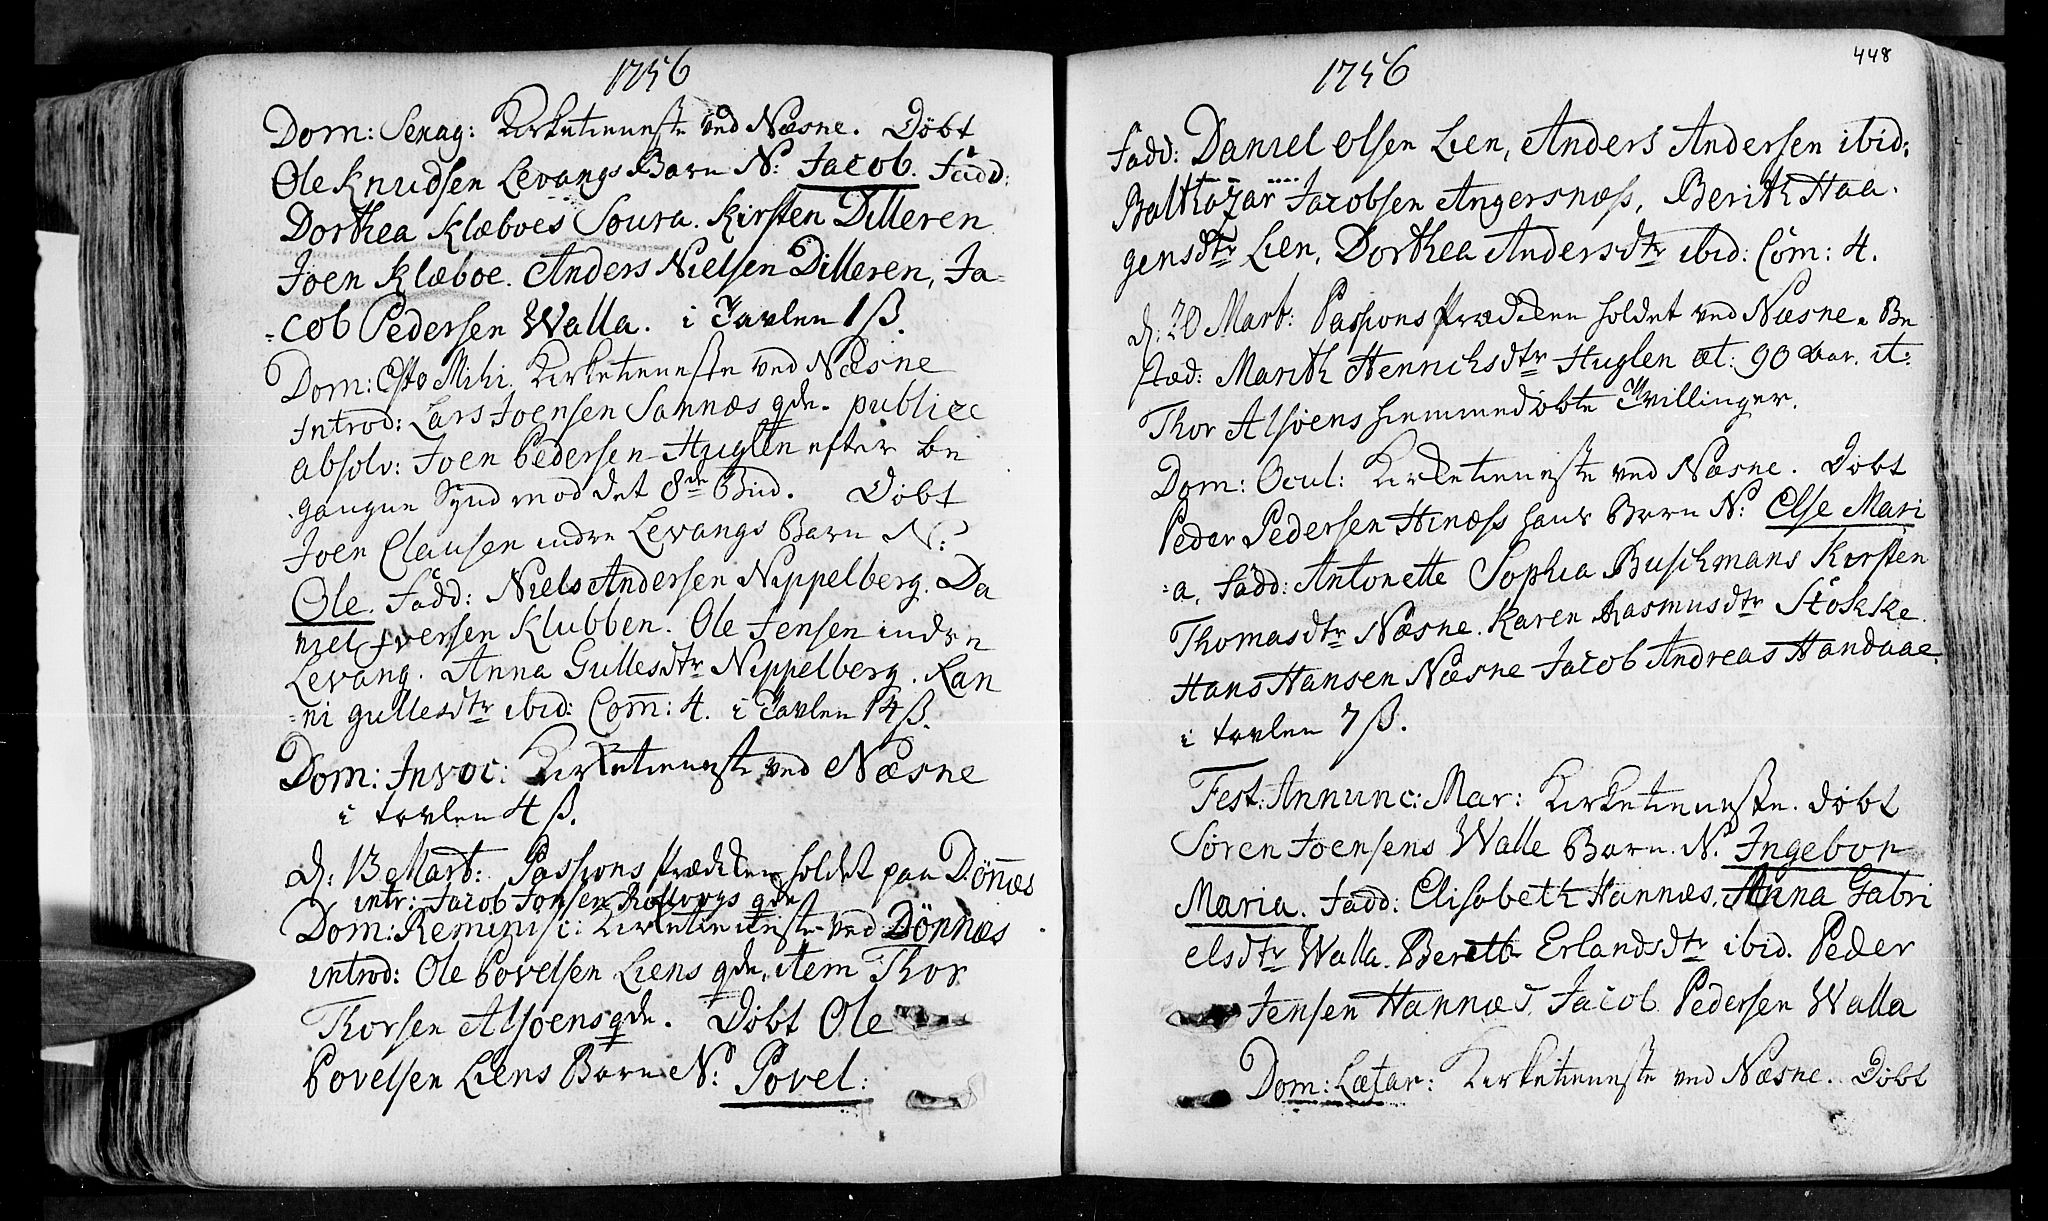 1756
Dom: Sexag: Kirketieneste ved Næsne. Döbt
Ole Knudsen Levangs Barn N: Jacob. Fadd:
Dorthea Klæboes Soura. Kirsten Dilleren
Joen Klæboe. Anders Nielsen Dilleren, Ja-
-cob Pedersen Walla. i Tavlen 1 ß.
Dom: Esto Mihi. Kirketieneste ved Næsne
Introd: Lars Joensen Sannæs qde. publice
absolv: Joen Pedersen Huglen efter be
gangen Synd mod det 8de Bud. Döbt
Joen Clausen indre Levangs Barn N:
Ole. Fadd: Niels Andersen Nippelberg. Da
niel Iversen Klubben. Ole Jensen indre
Levang. Anna Gullesdtr Nippelberg. Ran
-ni Gullesdtr ibid: Com: 4. i Tavlen 14 ß.
Dom: Invoc: Kirketieneste ved Næsne
i tavlen 4 ß.
d: 13 Mart: Passions Prædiken holdet paa Dönnæs
intr: Jacob Jonsen qde
Dom: Reminisc: Kirketieneste ved Dönnæs
introd: Ole Povelsen Liens qde, item Thor
Thorsen Alsöens qde. Döbt Ole
Povelsen Liens Barn N: Povel:
1756
448
Fadd: Daniel Olsen Lien, Anders Andersen ibid:
Balthazar Jacobsen Angersnæss, Berith Haa-
gensdtr Lien, Dorthea Andersdtr ibid: Com: 4.
d: 20 Mart: Passions Prædiken holdet ved Næsne. Be
stæd: Marith Henrichsdtr Huglen æt: 90 aar. it:
Thor Alsöens hiemmedöbte Tvillinger.
Dom: Ocul: Kirketieneste ved Næsne. Döbt
Peder Pedersen Hinæss hans Barn N: Else Mari
-a, Fadd: Antonette Sophia Buschmans Kirsten
Thomasdtr Næsne. Karen Rasmusdtr Stökke
Hans Hansen Næsne Jacob Andreas Handaae.
i tavlen 7 ß.
Fest: Annunc: Mar: Kirketieneste. döbt
Sören Joensens Walle Barn. N: Ingebor
Maria. Fadd: Elisabeth Hannæs, Anna Gabri
elsdtr Walla. Bereth Erlandsdtr ibid. Peder
Jensen Hannæs, Jacob Pedersen Walla
Dom: Lætar: Kirketieneste ved Næsne. Döbt